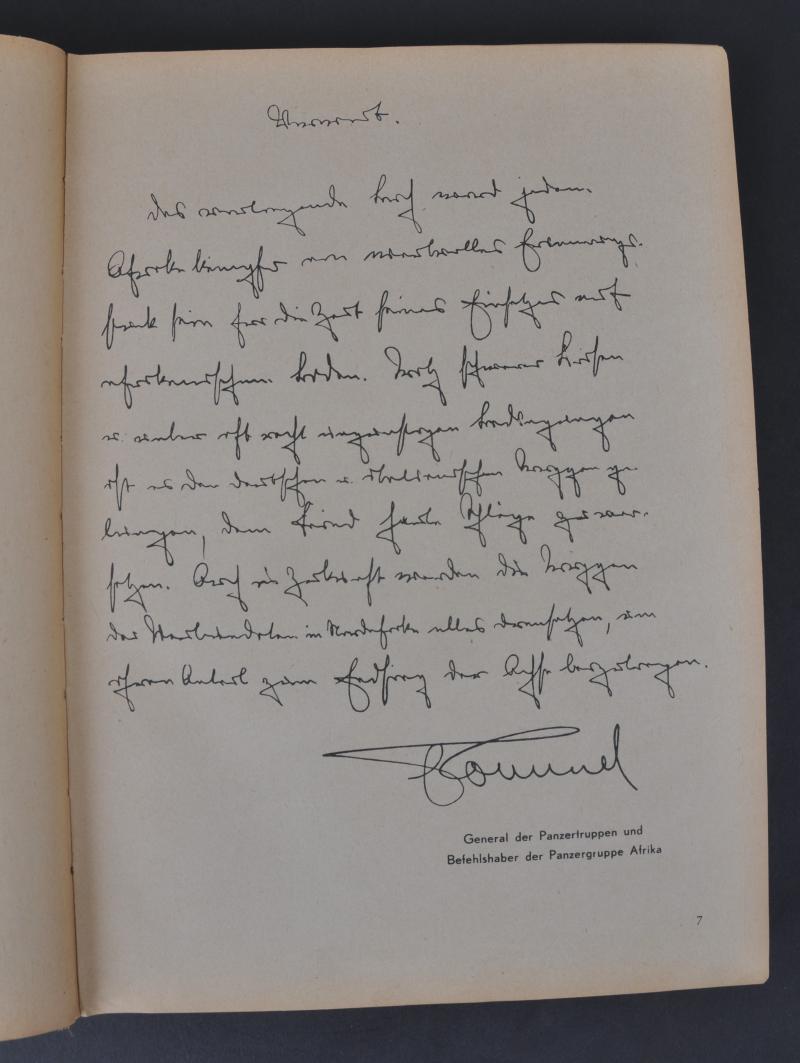 Vorwort.
Das vorliegende Buch wird jedem
Afrikakämpfer ein wertvolles Erinnerungs-
stück sein für die Zeit seines Einsatzes auf
afrikanischem Boden. Trotz schwerer Krisen
u. unter oft recht ungünstigen Bedingungen
ist es den deutschen u. italienischen Truppen ge-
lungen, dem Feind harte Schläge zu ver-
setzen. Auch in Zukunft werden die Truppen
der Verbündeten in Nordafrika alles daransetzen, um
ihren Anteil zum Endsieg der Achse beizutragen.
Rommel
General der Panzertruppen und
Befehlshaber der Panzergruppe Afrika
7